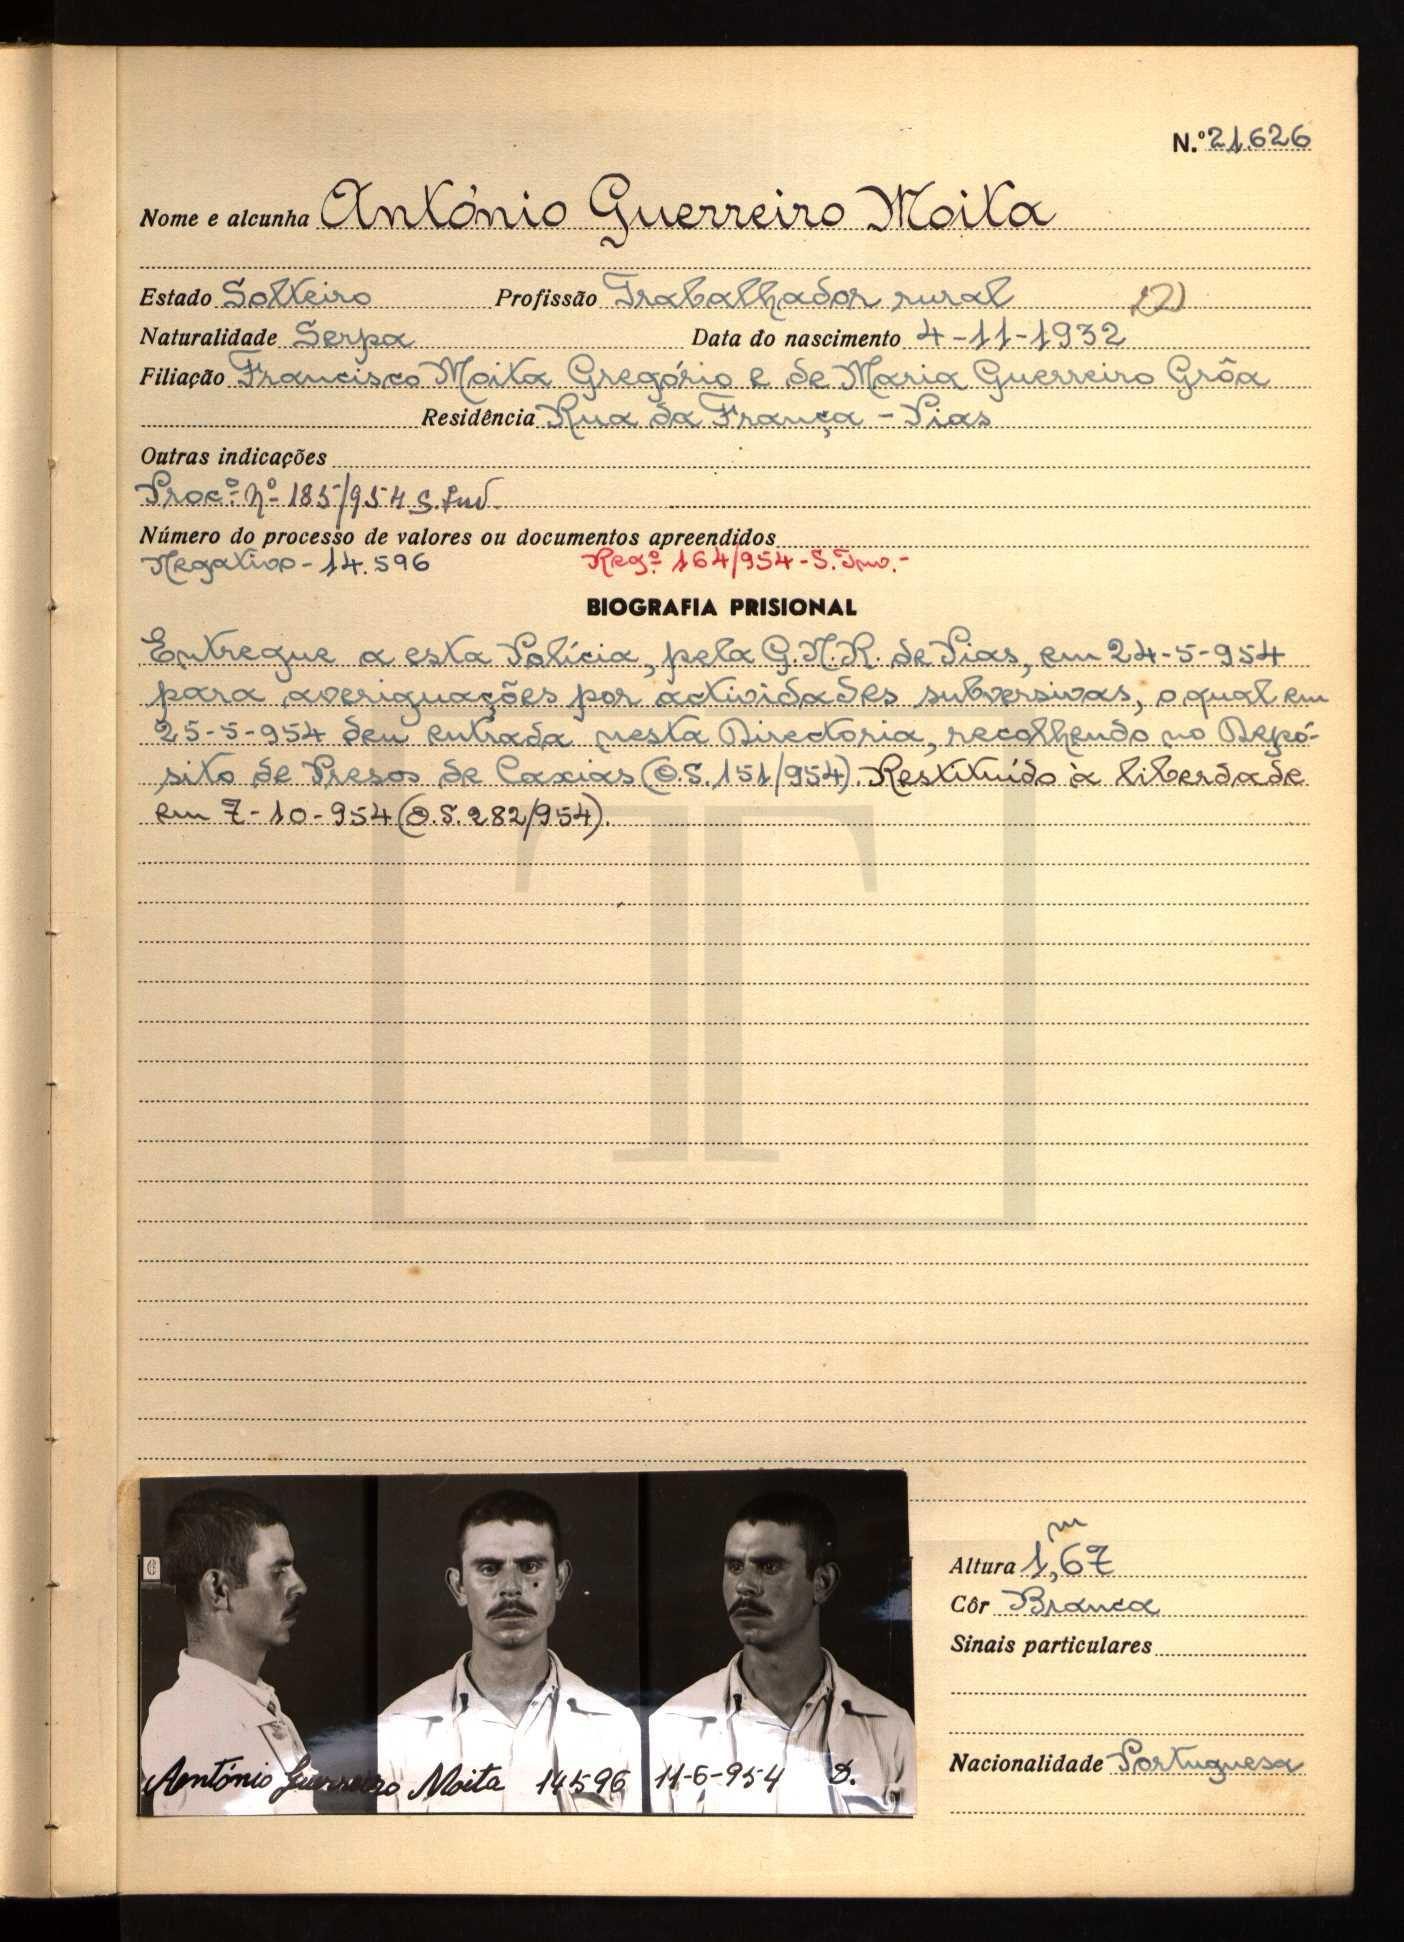 N.º 21.626
Nome e alcunha António Guerreiro Moita
Estado Solteiro Profissão Trabalhador rural
Naturalidade Serpa Data do nascimento 4-11-1932
Filiação Francisco Moita Gregório e de Maria Guerreiro Grôa
Residência Rua da França - Pias
Outras indicações
Procº. nº 185/954 S. Inv.
Número do processo de valores ou documentos apreendidos
Negativo - 14.596 Regº. 164/954 - S. Inv. -
BIOGRAFIA PRISIONAL
Entregue a esta Polícia, pela G.N.R. de Pias, em 24-5-954
para averiguações por actividades subversivas, o qual em
25-5-954 deu entrada nesta Directoria, recolhendo no Depó-
sito de Presos de Caxias (O.S. 151/954). Restituído à liberdade
em 7-10-954 (O.S. 282/954).
Altura 1,67 m
Côr Branca
Sinais particulares
Nacionalidade Portuguesa
António Guerreiro Moita 14596 11-6-954 D.